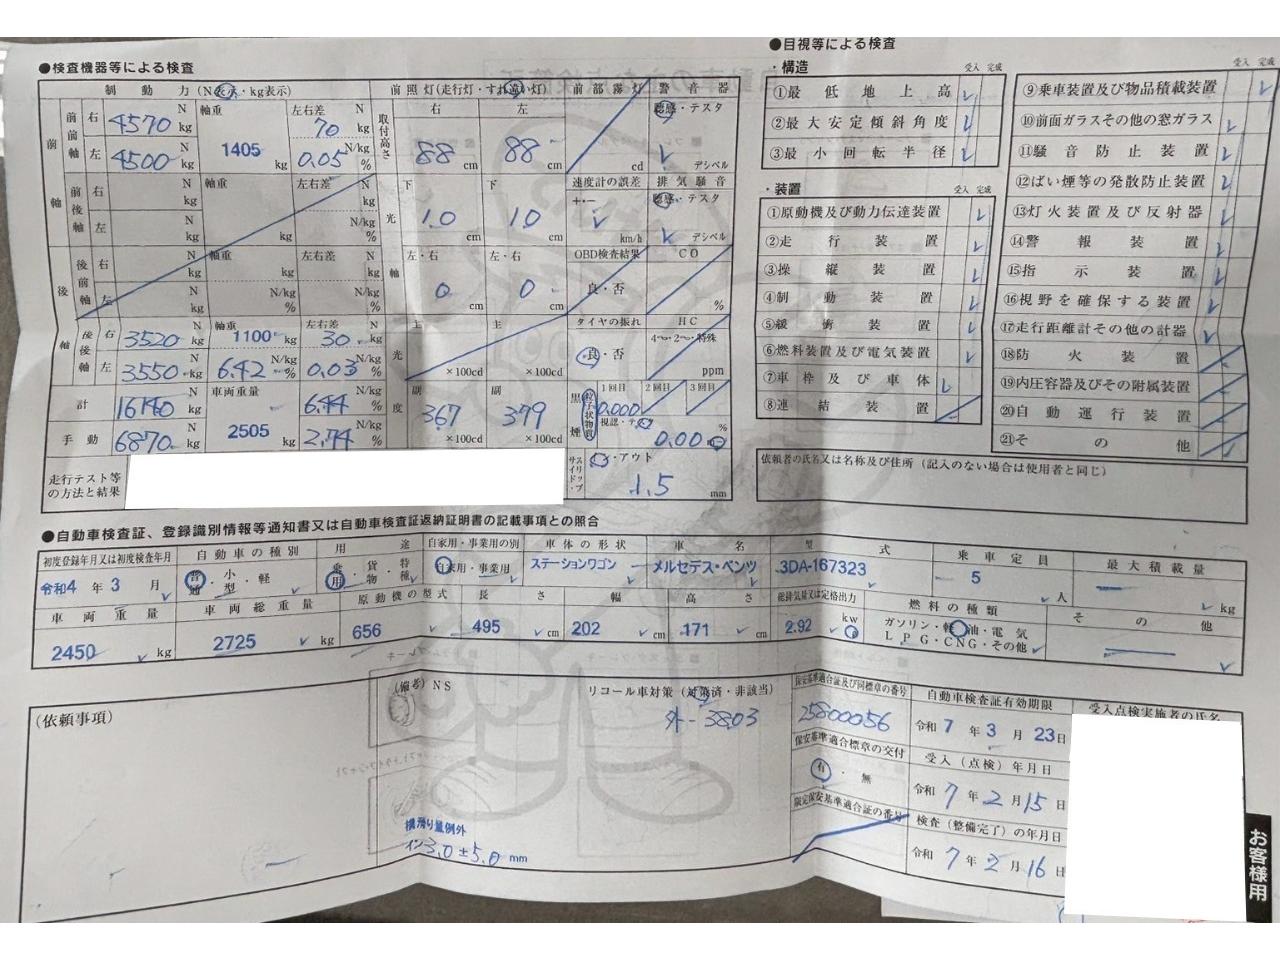 ●検査機器等による検査
制動力(N表示・kg表示)
前照灯(走行灯・すれ違い灯)
前部霧灯
警音器
前軸
前前軸
右 4570 N kg
左 4500 N kg
軸重 1405 kg
左右差 70 N kg
0.05 N/kg %
取付高さ
右 88 cm
左 88 cm
cd
聴感・テスタ
デシベル
前後軸
右 N kg
左 N kg
軸重 kg
左右差 N kg
N/kg %
光軸
下 10 cm
下 10 cm
速度計の誤差
+・− km/h
排気騒音
聴感・テスタ
デシベル
後軸
後前軸
右 N kg
左 N kg
軸重 kg
N/kg %
左右差 N kg
N/kg %
左・右 0 cm
左・右 0 cm
OBD検査結果
良・否
CO
%
後後軸
右 3520 N kg
左 3550 N kg
軸重 1100 kg
6.42 N/kg %
左右差 30 N kg
0.03 N/kg %
光度
主 ×100cd
主 ×100cd
タイヤの振れ
良・否
HC
4・2・特殊
ppm
計 16140 N kg
車両重量
2505 kg
6.44 N/kg %
手動 6870 N kg
2.74 N/kg %
副 367 ×100cd
副 379 ×100cd
黒煙
粒子状物質
1回目 2回目 3回目
0.000
%
0.00
走行テスト等の方法と結果
サイドスリップ
イン・アウト
1.5 mm
●目視等による検査
・構造
受入 完成
①最低地上高
②最大安定傾斜角度
③最小回転半径
・装置
受入 完成
①原動機及び動力伝達装置
②走行装置
③操縦装置
④制動装置
⑤緩衝装置
⑥燃料装置及び電気装置
⑦車枠及び車体
⑧連結装置
受入 完成
⑨乗車装置及び物品積載装置
⑩前面ガラスその他の窓ガラス
⑪騒音防止装置
⑫ばい煙等の発散防止装置
⑬灯火装置及び反射器
⑭警報装置
⑮指示装置
⑯視野を確保する装置
⑰走行距離計その他の計器
⑱防火装置
⑲内圧容器及びその附属装置
⑳自動運行装置
㉑その他
依頼者の氏名又は名称及び住所(記入のない場合は使用者と同じ)
●自動車検査証、登録識別情報等通知書又は自動車検査証返納証明書の記載事項との照合
初度登録年月又は初度検査年月
令和4年3月
自動車の種別
普通・小型・軽
用途
乗用・貨物・特種
自家用・事業用の別
自家用・事業用
車体の形状
ステーションワゴン
車名
メルセデス・ベンツ
型式
3DA-167323
乗車定員
5人
最大積載量
kg
車両重量
2450 kg
車両総重量
2725 kg
原動機の型式
656
長さ
495 cm
幅
202 cm
高さ
171 cm
総排気量又は定格出力
2.92 kw ℓ
燃料の種類
ガソリン・軽油・電気
LPG・CNG・その他
その他
(依頼事項)
(備考)NS
リコール車対策(対策済・非該当)
外-3803
横滑り量例外
イン3.0±5.0 mm
保安基準適合証及び同標章の番号
25800056
保安基準適合標章の交付
有・無
限定保安基準適合証の番号
自動車検査証有効期限
令和7年3月23日
受入(点検)年月日
令和7年2月15日
検査(整備完了)の年月日
令和7年2月16日
受入点検実施者の氏名
お客様用